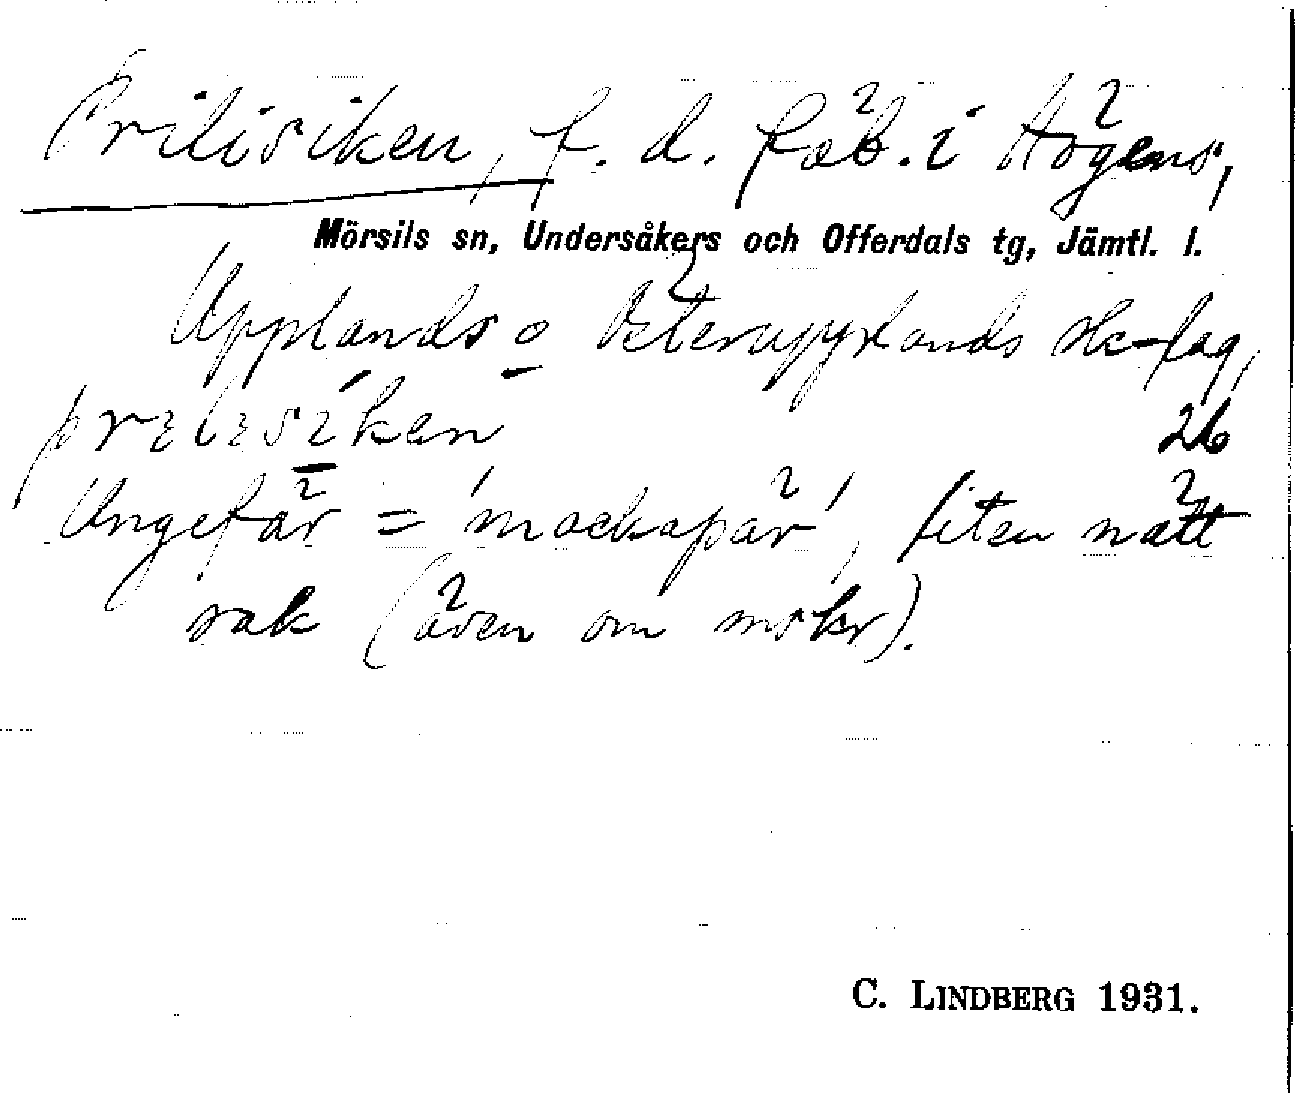 Prilisiken, f. d. fäb. i Högens,
Mörsils sn, Undersåkers och Offerdals tg, Jämtl. l.
Upplands o Österupplands sk-lag,
26
Ungefär = 'mackapär', liten nätt
sak (även om mskr).
C. LINDBERG 1931.